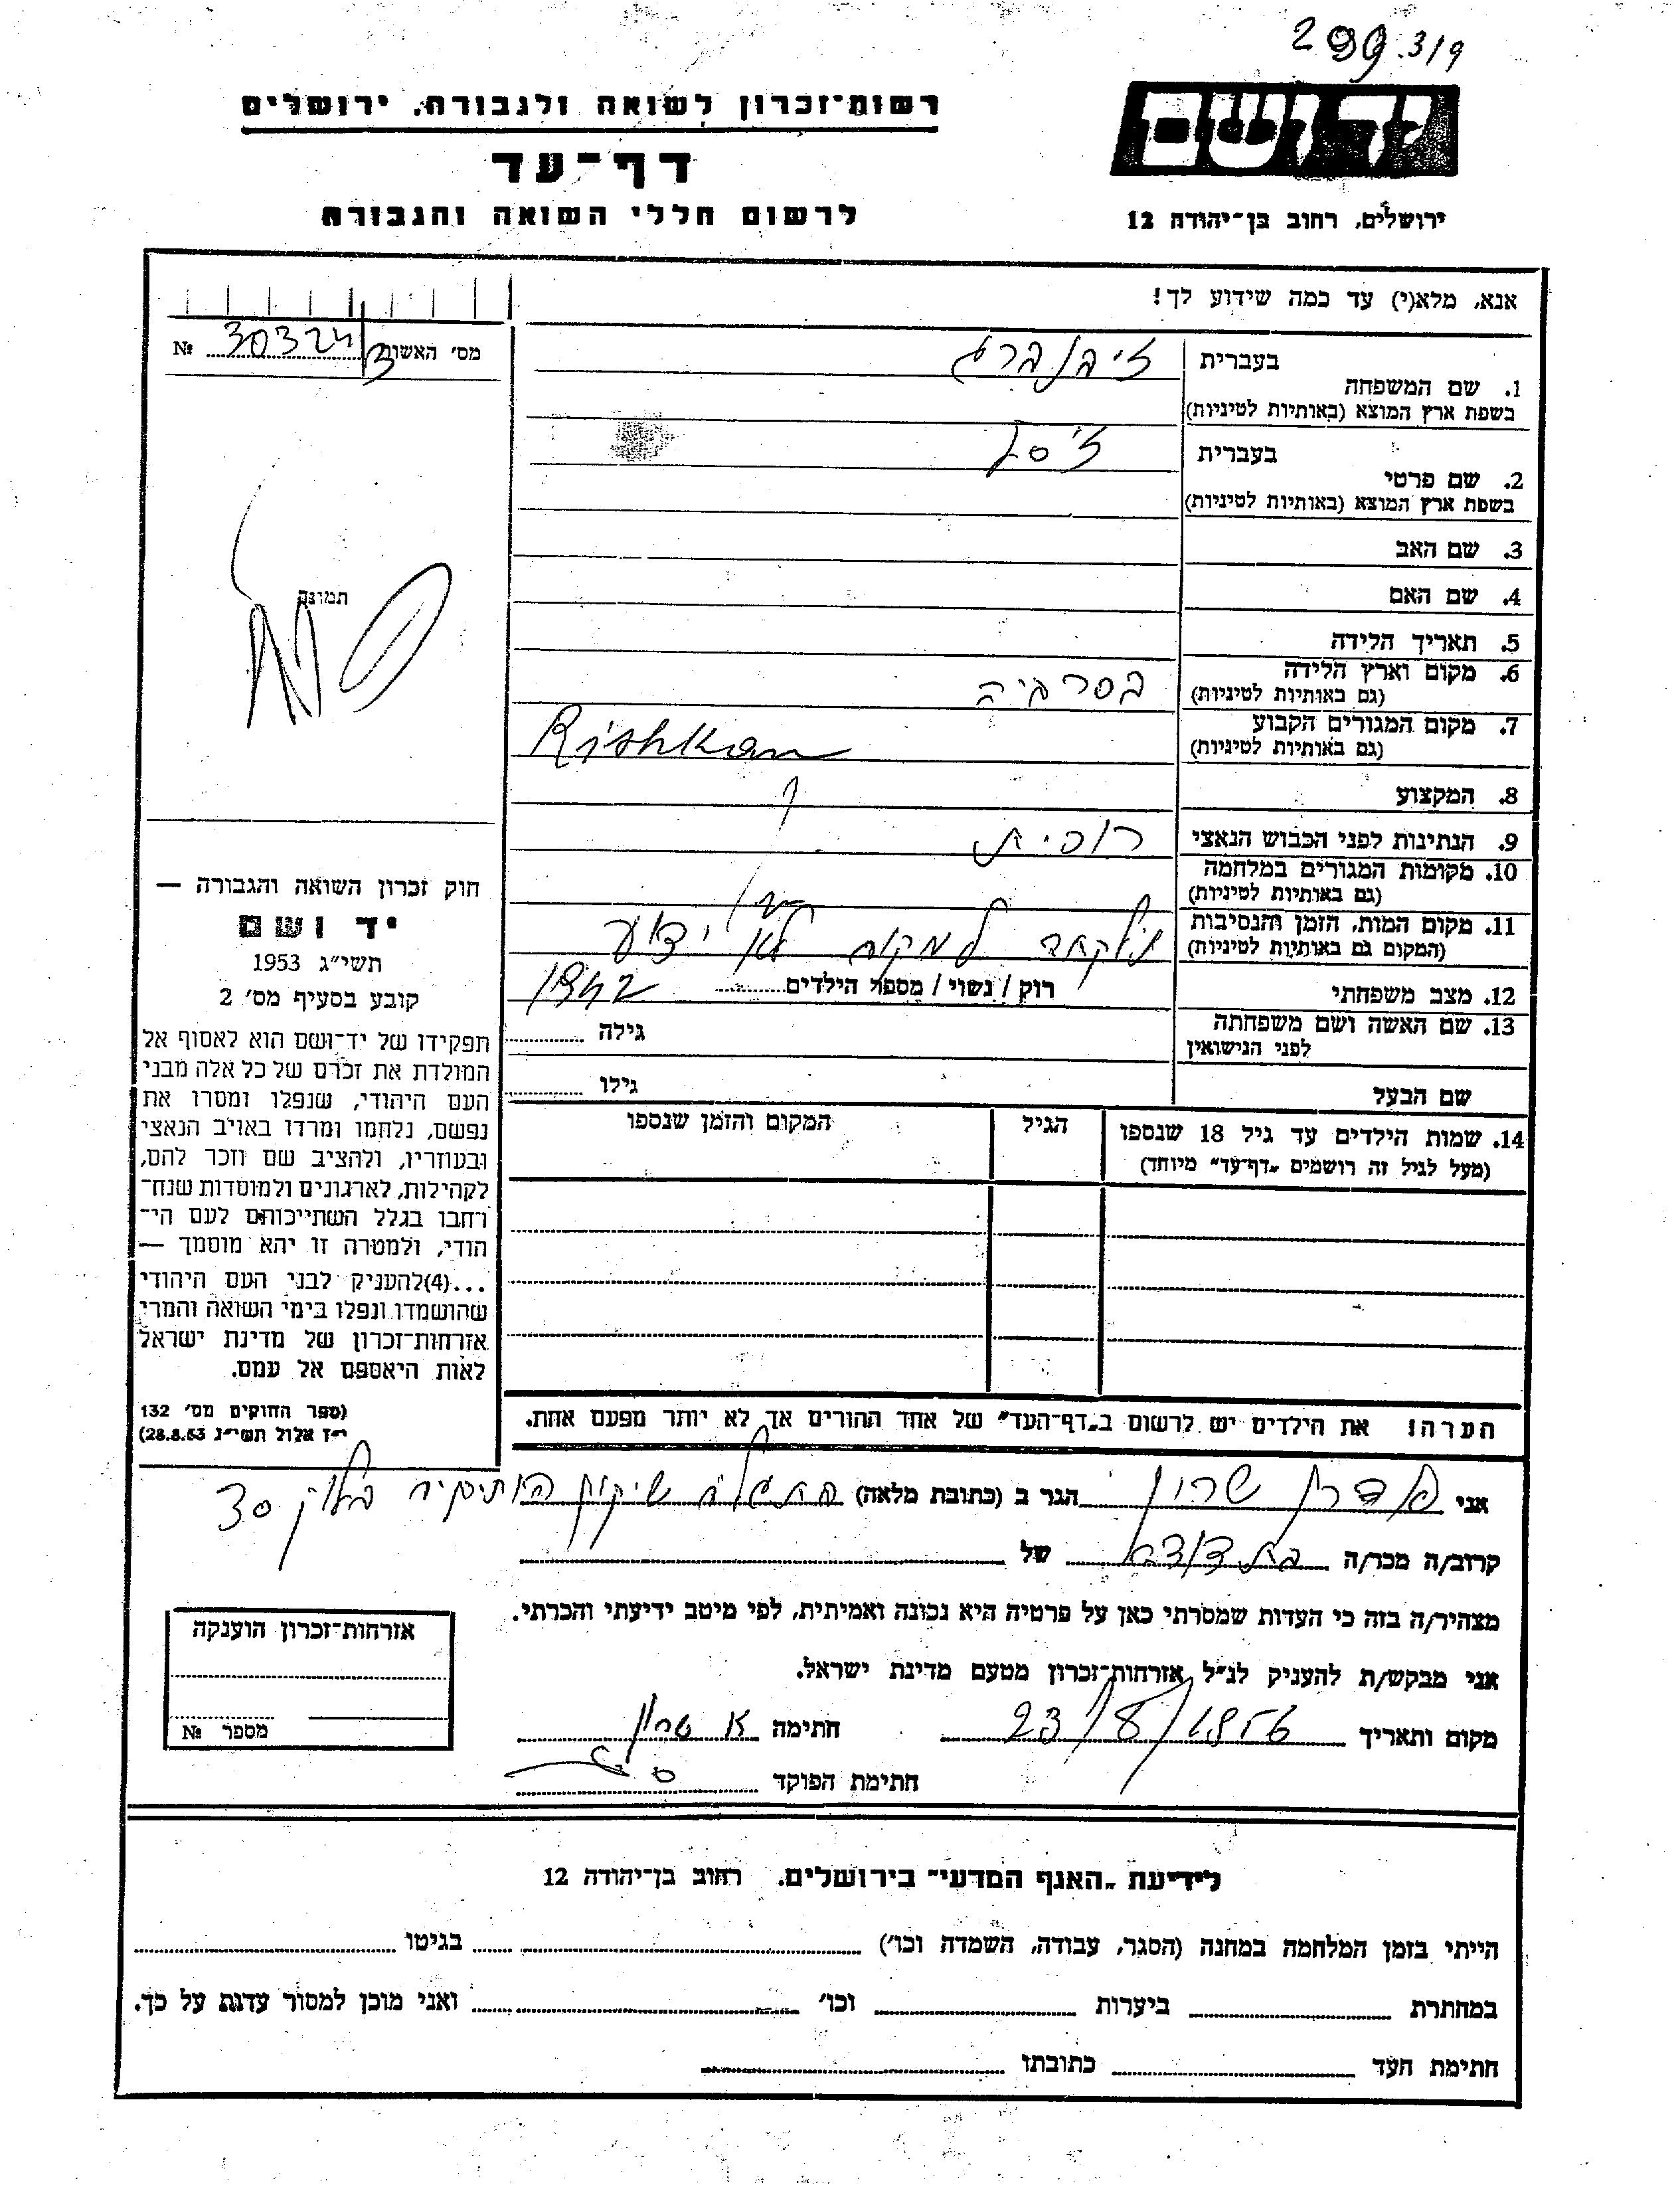 299.319
רשות־זכרון לשואה ולגבורה, ירושלים
יד ושם
דף־עד
לרשום חללי השואה והגבורה
ירושלים, רחוב בן־יהודה 12
אנא, מלא(י) עד כמה שידוע לך!
מס׳ האשור № 30324
1. שם המשפחה בעברית
בשפת ארץ המוצא (באותיות לטיניות)
2. שם פרטי בעברית
בשפת ארץ המוצא (באותיות לטיניות)
3. שם האב
4. שם האם
תמונה
5. תאריך הלידה
6. מקום וארץ הלידה בסרביה
(גם באותיות לטיניות)
7. מקום המגורים הקבוע Rishkan
(גם באותיות לטיניות)
8. המקצוע
9. הנתינות לפני הכבוש הנאצי
10. מקומות המגורים במלחמה
(גם באותיות לטיניות)
11. מקום המות, הזמן והנסיבות נלקחה למקום לא ידוע
(המקום גם באותיות לטיניות)
12. מצב משפחתי רוק / נשוי / מספר הילדים 1942
13. שם האשה ושם משפחתה גילה
לפני הנישואין
שם הבעל גילו
14. שמות הילדים עד גיל 18 שנספו הגיל המקום והזמן שנספו
(מעל לגיל זה רושמים „דף־עד” מיוחד)
חוק זכרון השואה והגבורה —
יד ושם
תשי״ג 1953
קובע בסעיף מס׳ 2
תפקידו של יד־ושם הוא לאסוף אל
המולדת את זכרם של כל אלה מבני
העם היהודי, שנפלו ומסרו את
נפשם, נלחמו ומרדו באויב הנאצי
ובעוזריו, ולהציב שם וזכר להם,
לקהילות, לארגונים ולמוסדות שנח־
רבו בגלל השתייכותם לעם הי־
הודי, ולמטרה זו יהא מוסמך —
...(4)להעניק לבני העם היהודי
שהושמדו ונפלו בימי השואה והמרי
אזרחות־זכרון של מדינת ישראל
לאות היאספם אל עמם.
(ספר החוקים מס׳ 132
י״ז אלול תשי״ג 28.8.53)
הערה! את הילדים יש לרשום ב„דף־העד” של אחד ההורים אך לא יותר מפעם אחת.
אני שרון הגר ב (כתובת מלאה) שיקון בלוק 30
קרוב/ה מכר/ה בת דודה של
מצהיר/ה בזה כי העדות שמסרתי כאן על פרטיה היא נכונה ואמיתית, לפי מיטב ידיעתי והכרתי.
אני מבקש/ת להעניק לנ״ל אזרחות־זכרון מטעם מדינת ישראל.
מקום ותאריך 23/8/1956 חתימה שרון
חתימת הפוקד
אזרחות־זכרון הוענקה
מספר №
לידיעת „האגף המדעי” בירושלים. רחוב בן־יהודה 12
הייתי בזמן המלחמה במחנה (הסגר, עבודה, השמדה וכו׳) בגיטו
במחתרת ביערות וכו׳ ואני מוכן למסור עדות על כך.
חתימת העד כתובתו